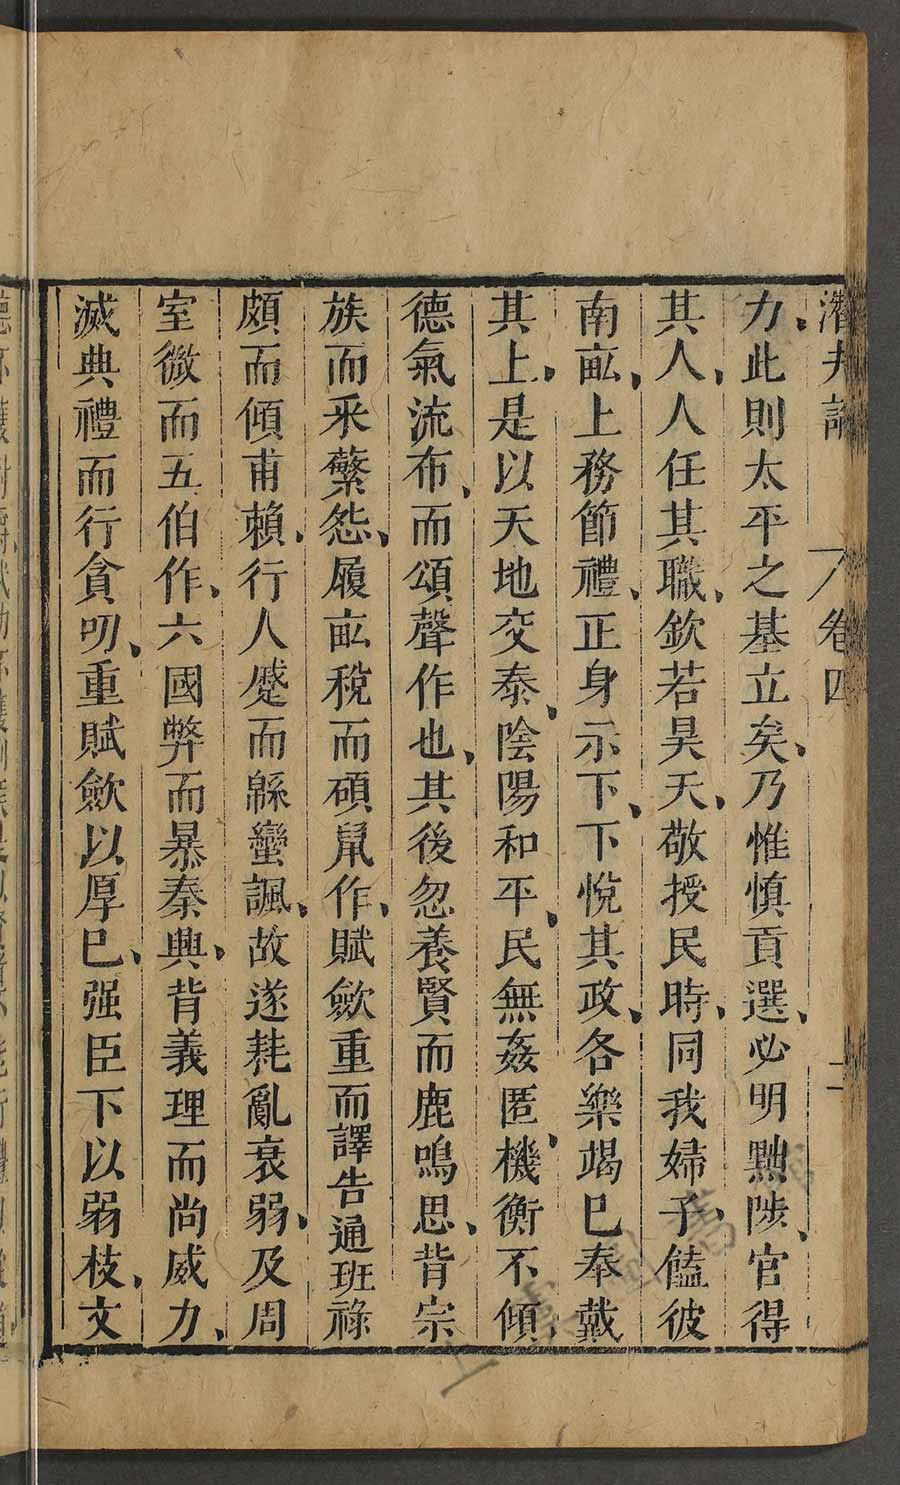 潛夫論 卷四 二
力此則太平之基立矣乃惟慎貢選必明黜陟官得
其人人任其職欽若昊天敬授民時同我婦子饁彼
南畝上務節禮正身示下下悅其政各樂竭巳奉戴
其上是以天地交泰陰陽和平民無姦匿機衡不傾
德氣流布而頌聲作也其後忽養賢而鹿鳴思背宗
族而采蘩怨履畝稅而碩鼠作賦斂重而譯告通班祿
頗而傾甫賴行人蹙而緜蠻諷故遂耗亂衰弱及周
室微而五伯作六國弊而暴秦興背義理而尚威力
滅典禮而行貪叨重賦斂以厚巳强臣下以弱枝文